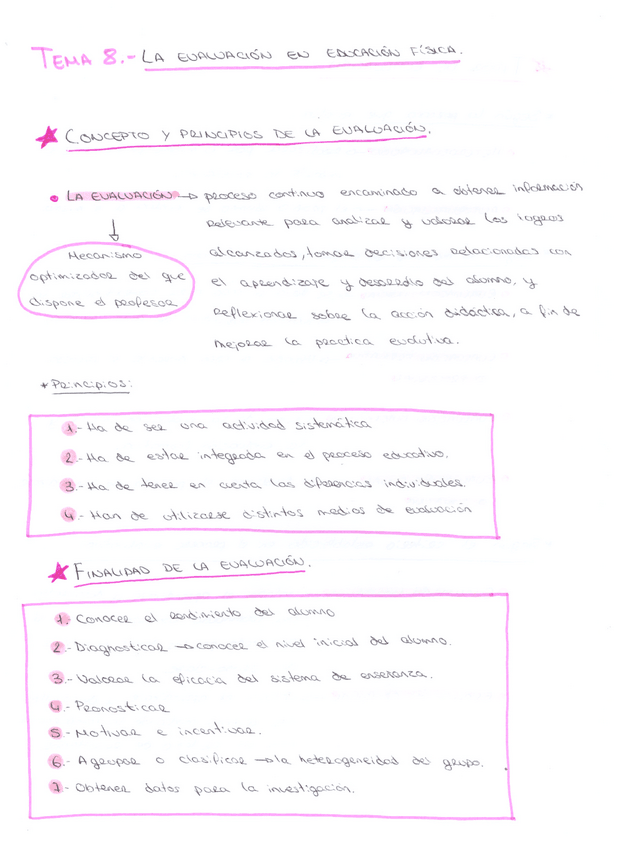 TEMA 8.- LA EVALUACIÓN EN EDUCACIÓN FÍSICA.
CONCEPTO Y PRINCIPIOS DE LA EVALUACIÓN.
• LA EVALUACIÓN → proceso continuo encaminado a obtener información
relevante para analizar y valorar los logros
alcanzados, tomar decisiones relacionadas con
el aprendizaje y desarrollo del alumno, y
reflexionar sobre la acción didáctica, a fin de
mejorar la practica evolutiva.
Mecanismo
optimizador del que
dispone el profesor
* Principios:
1.- Ha de ser una actividad sistemática
2.- Ha de estar integrada en el proceso educativo.
3.- Ha de tener en cuenta las diferencias individuales.
4.- Han de utilizarse distintos medios de evaluación
FINALIDAD DE LA EVALUACIÓN.
1. Conocer el rendimiento del alumno
2.- Diagnosticar → conocer el nivel inicial del alumno.
3.- Valorar la eficacia del sistema de enseñanza.
4.- Pronosticar
5.- Motivar e incentivar.
6.- Agrupar o clasificar → la heterogeneidad del grupo.
7.- Obtener datos para la investigación.